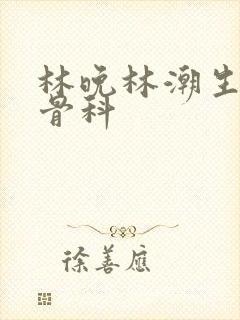 林晚林潮生
骨科
徐善應